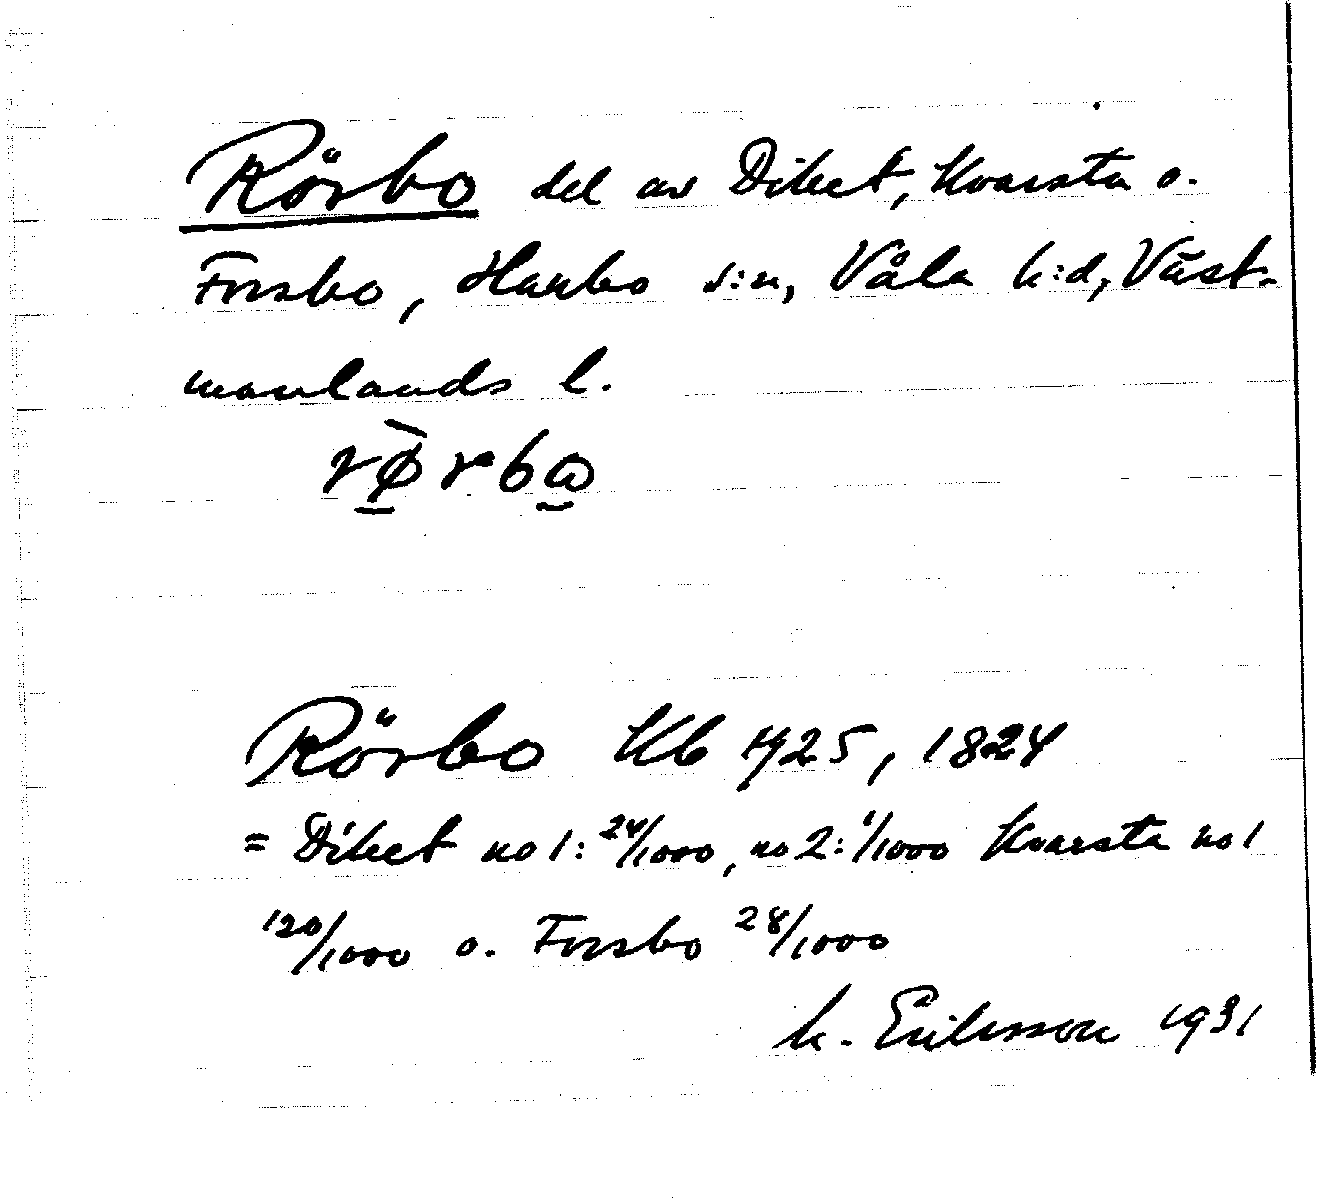 Rörbo del av Diket, Kvarsta o.
Forsbo, Harbo s:n, Våla h:d, Väst-
manlands l.
rø̀rbω
Rörbo Kb 1725, 1824
= Diket no 1: 24/1000, no 2: 1/1000 Kvarsta no 1
120/1000 o. Forsbo 28/1000
M. Eriksson 1931